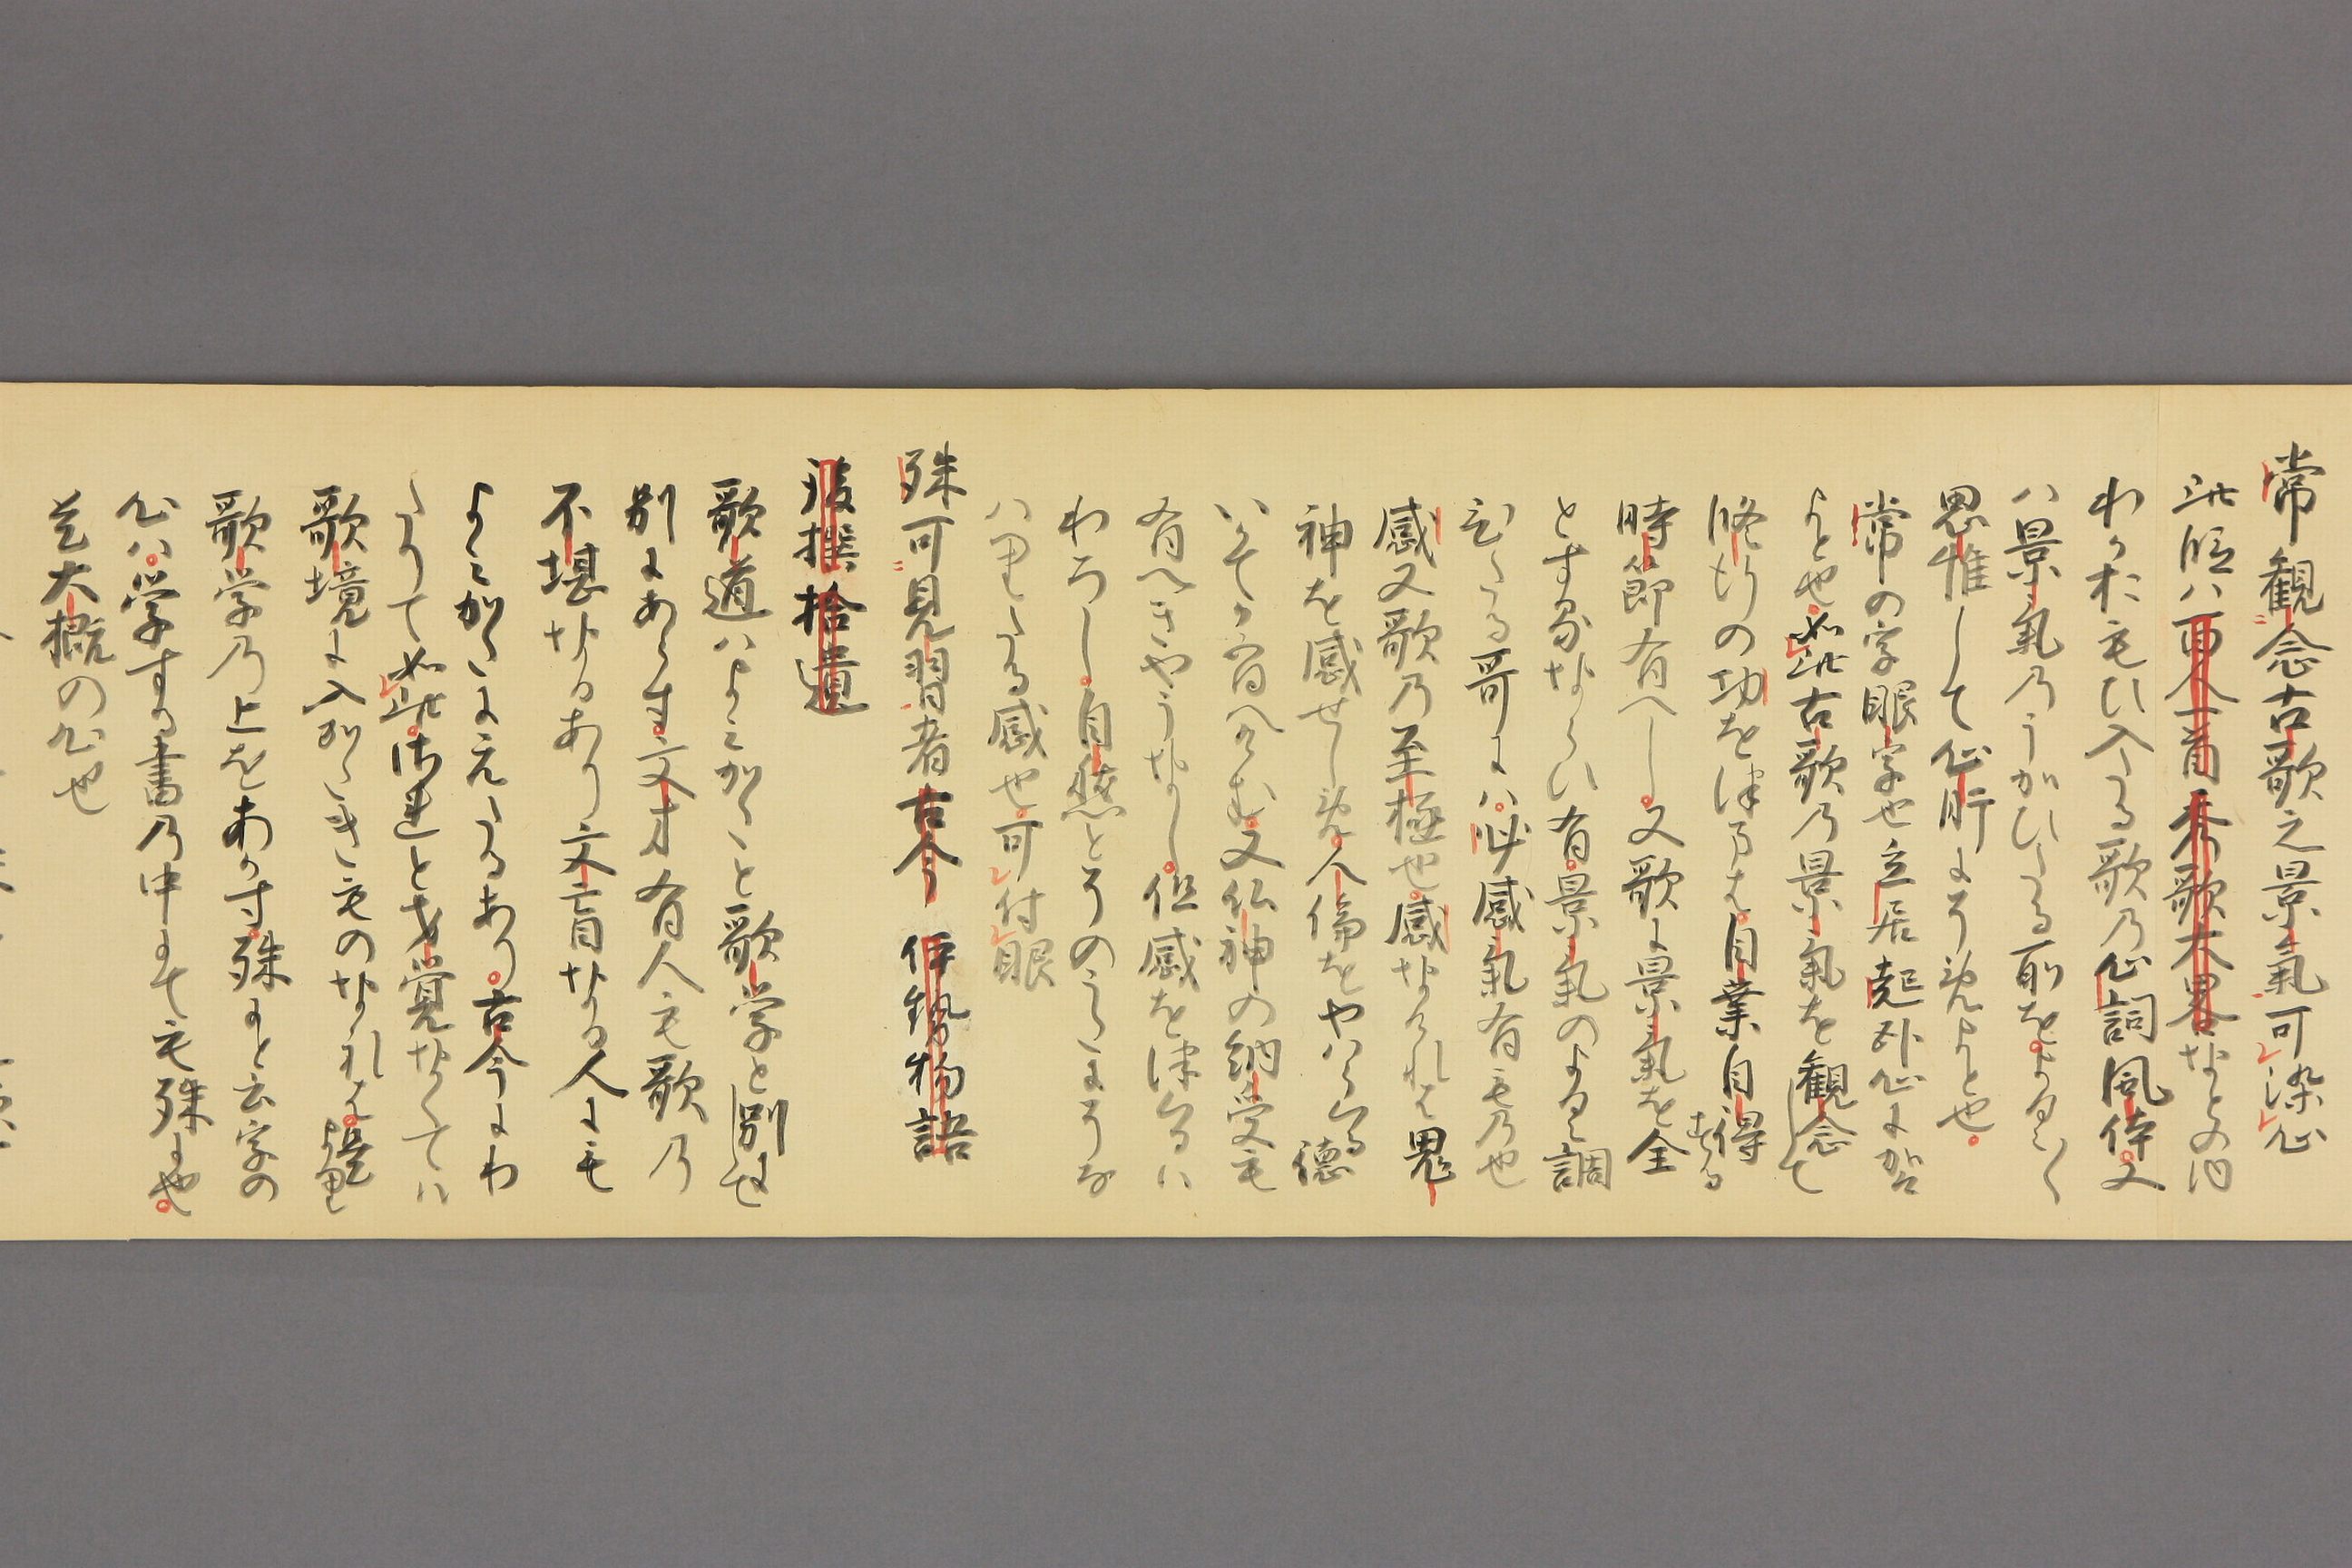 常観念古歌之景氣可染心
此段ハ百人一首秀歌大畧なとの内
わかおもひ入たる歌乃心詞風体又
ハ景氣乃うかひたる所をよくゝ
思惟して心肝にそめよと也
常の字眼字也立居起臥心に智
よと也如此古歌乃景氣を観念して
修行の功を津めは自業自得する
時節有へし又歌に景氣を全
とするならい有景氣のよく調
ひたる哥にハ必感氣有もの也
感又歌乃至極也感なけれは鬼
神を感せしめ人倫をやハらくる徳
いてか有へきそ又仏神の納受も
有へきやうなし但感を津くるハ
わろし自然とそのうへにそな
ハりたる感也可付眼
殊可見習者古今伊勢物語
後撰拾遺
歌道ハよミかたと歌学と別な
別にあらす文才有人も歌乃
不堪なるあり文盲なる人にも
よミかたに元たるあり古今にわ
たりて如此け連とも覚なくてハ
歌境に入かたきものなれは先
歌学乃上をあかす殊にと云字の
心ハ学する書乃中にても殊に也
是大概の心也